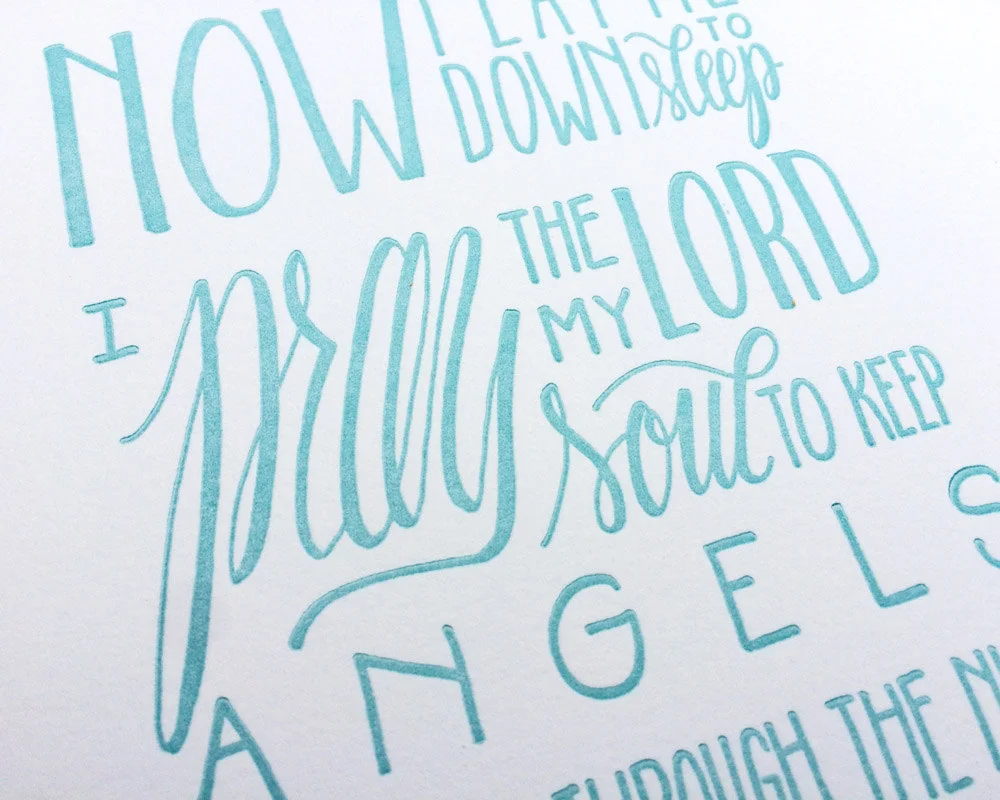 NOW I LAY ME
DOWN TO sleep
I pray THE LORD
MY soul TO KEEP
ANGELS
THROUGH THE